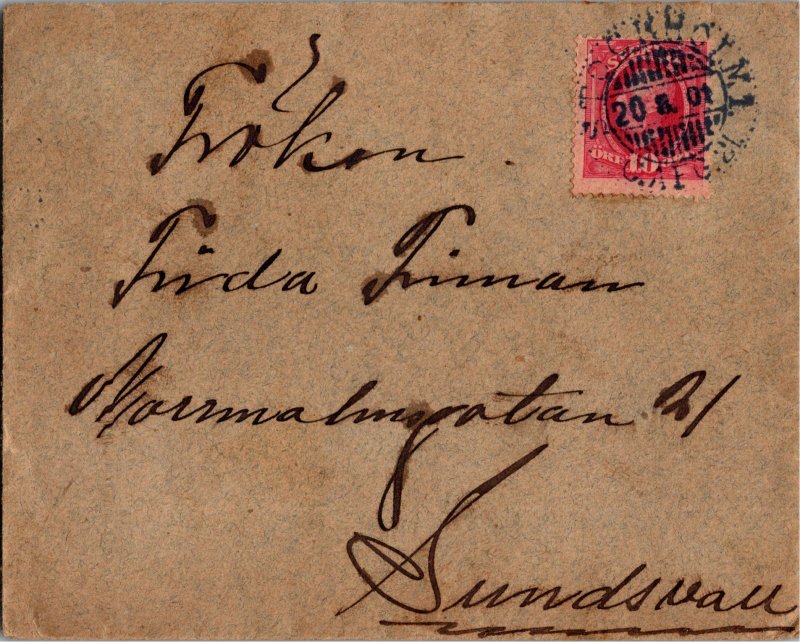 Fröken
Frida Friman
Norrmalmsgatan 21
Sundsvall
STOCKHOLM 1
20 8 01
ÖRE 10